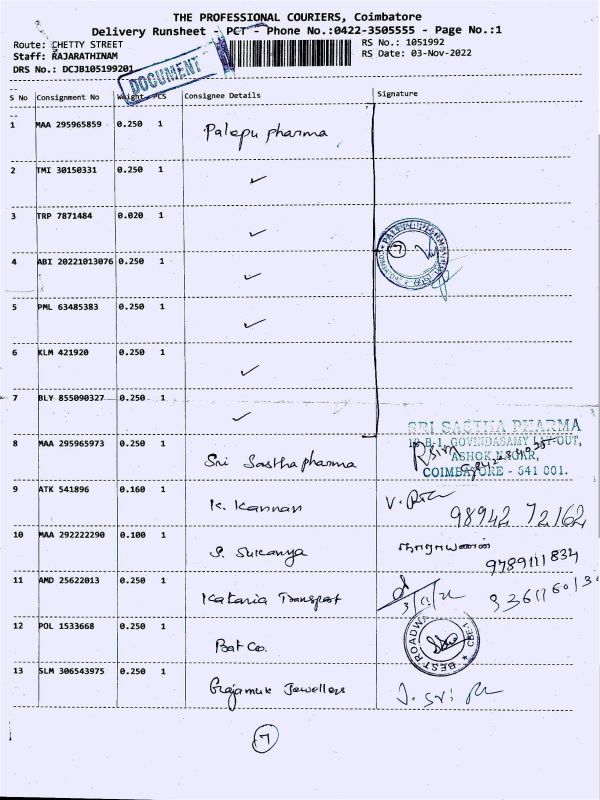 THE PROFESSIONAL COURIERS, Coimbatore
Delivery Runsheet - PCT - Phone No.:0422-3505555 - Page No.:1
Route: CHETTY STREET
RS No.: 1051992
Staff: RAJARATHINAM
RS Date: 03-Nov-2022
DRS No.: DCJB105199201
DOCUMENT
S No Consignment No Weight PCS Consignee Details Signature
1 MAA 295965859 0.250 1 Palepu pharma
2 TMI 30150331 0.250 1 ✓
3 TRP 7871484 0.020 1 ✓
7
4 ABI 20221013076 0.250 1 ✓
5 PML 63485383 0.250 1 ✓
6 KLM 421920 0.250 1 ✓
7 BLY 855090327 0.250 1 ✓
SRI SASTHA PHARMA
GOVINDASAMY LAY-OUT,
ASHOK NAGAR,
COIMBATORE - 641 001.
8 MAA 295965973 0.250 1 Sri Sastha pharma
9 ATK 541896 0.160 1 K. Kannan
98942 72162
10 MAA 292222290 0.100 1 S. Sukanya நாராயணன்
9789111834
11 AMD 25622013 0.250 1 Kataria Transport
3/11/22
12 POL 1533668 0.250 1 Bat Co.
BEST ROADWA
CBE-1
13 SLM 306543975 0.250 1 Jewellers
7